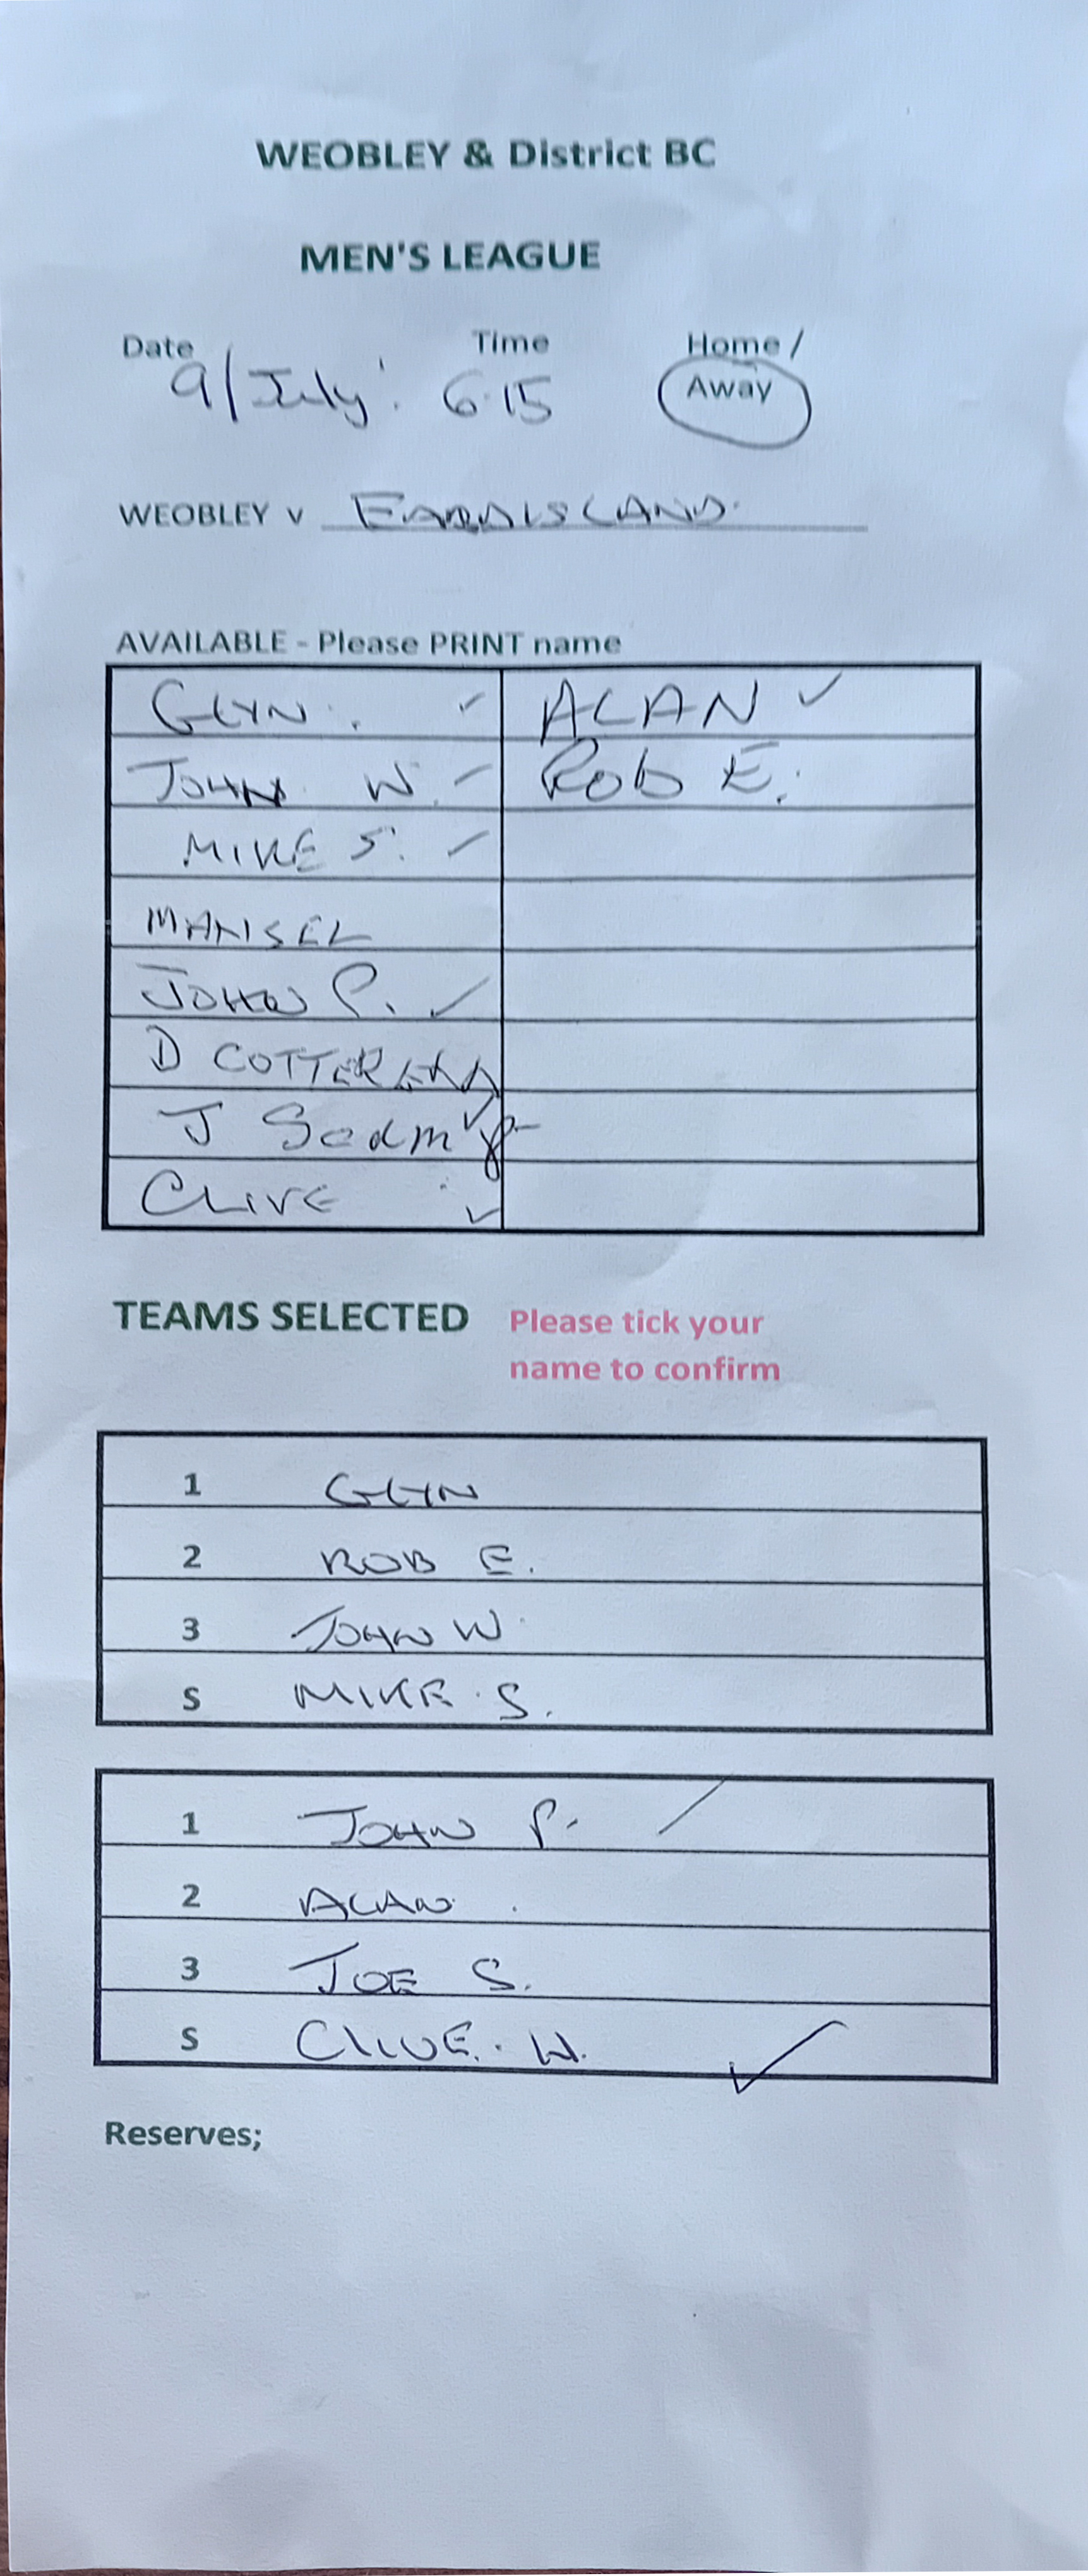 WEOBLEY & District BC
MEN'S LEAGUE
Date Time Home /
9/July. 6.15 Away
WEOBLEY v EARDISLAND.
AVAILABLE - Please PRINT name
GLYN. ✓ ALAN ✓
JOHN W. ✓ Rob E.
MIKE S. ✓
MANSEL
JOHN P. ✓
D COTTERELL
J ✓
CLIVE ✓
TEAMS SELECTED Please tick your
name to confirm
1 GLYN
2 ROB E.
3 JOHN W.
S MIKE S.
1 JOHN P. /
2 ALAN.
3 JOE S.
S CLIVE. W. ✓
Reserves;